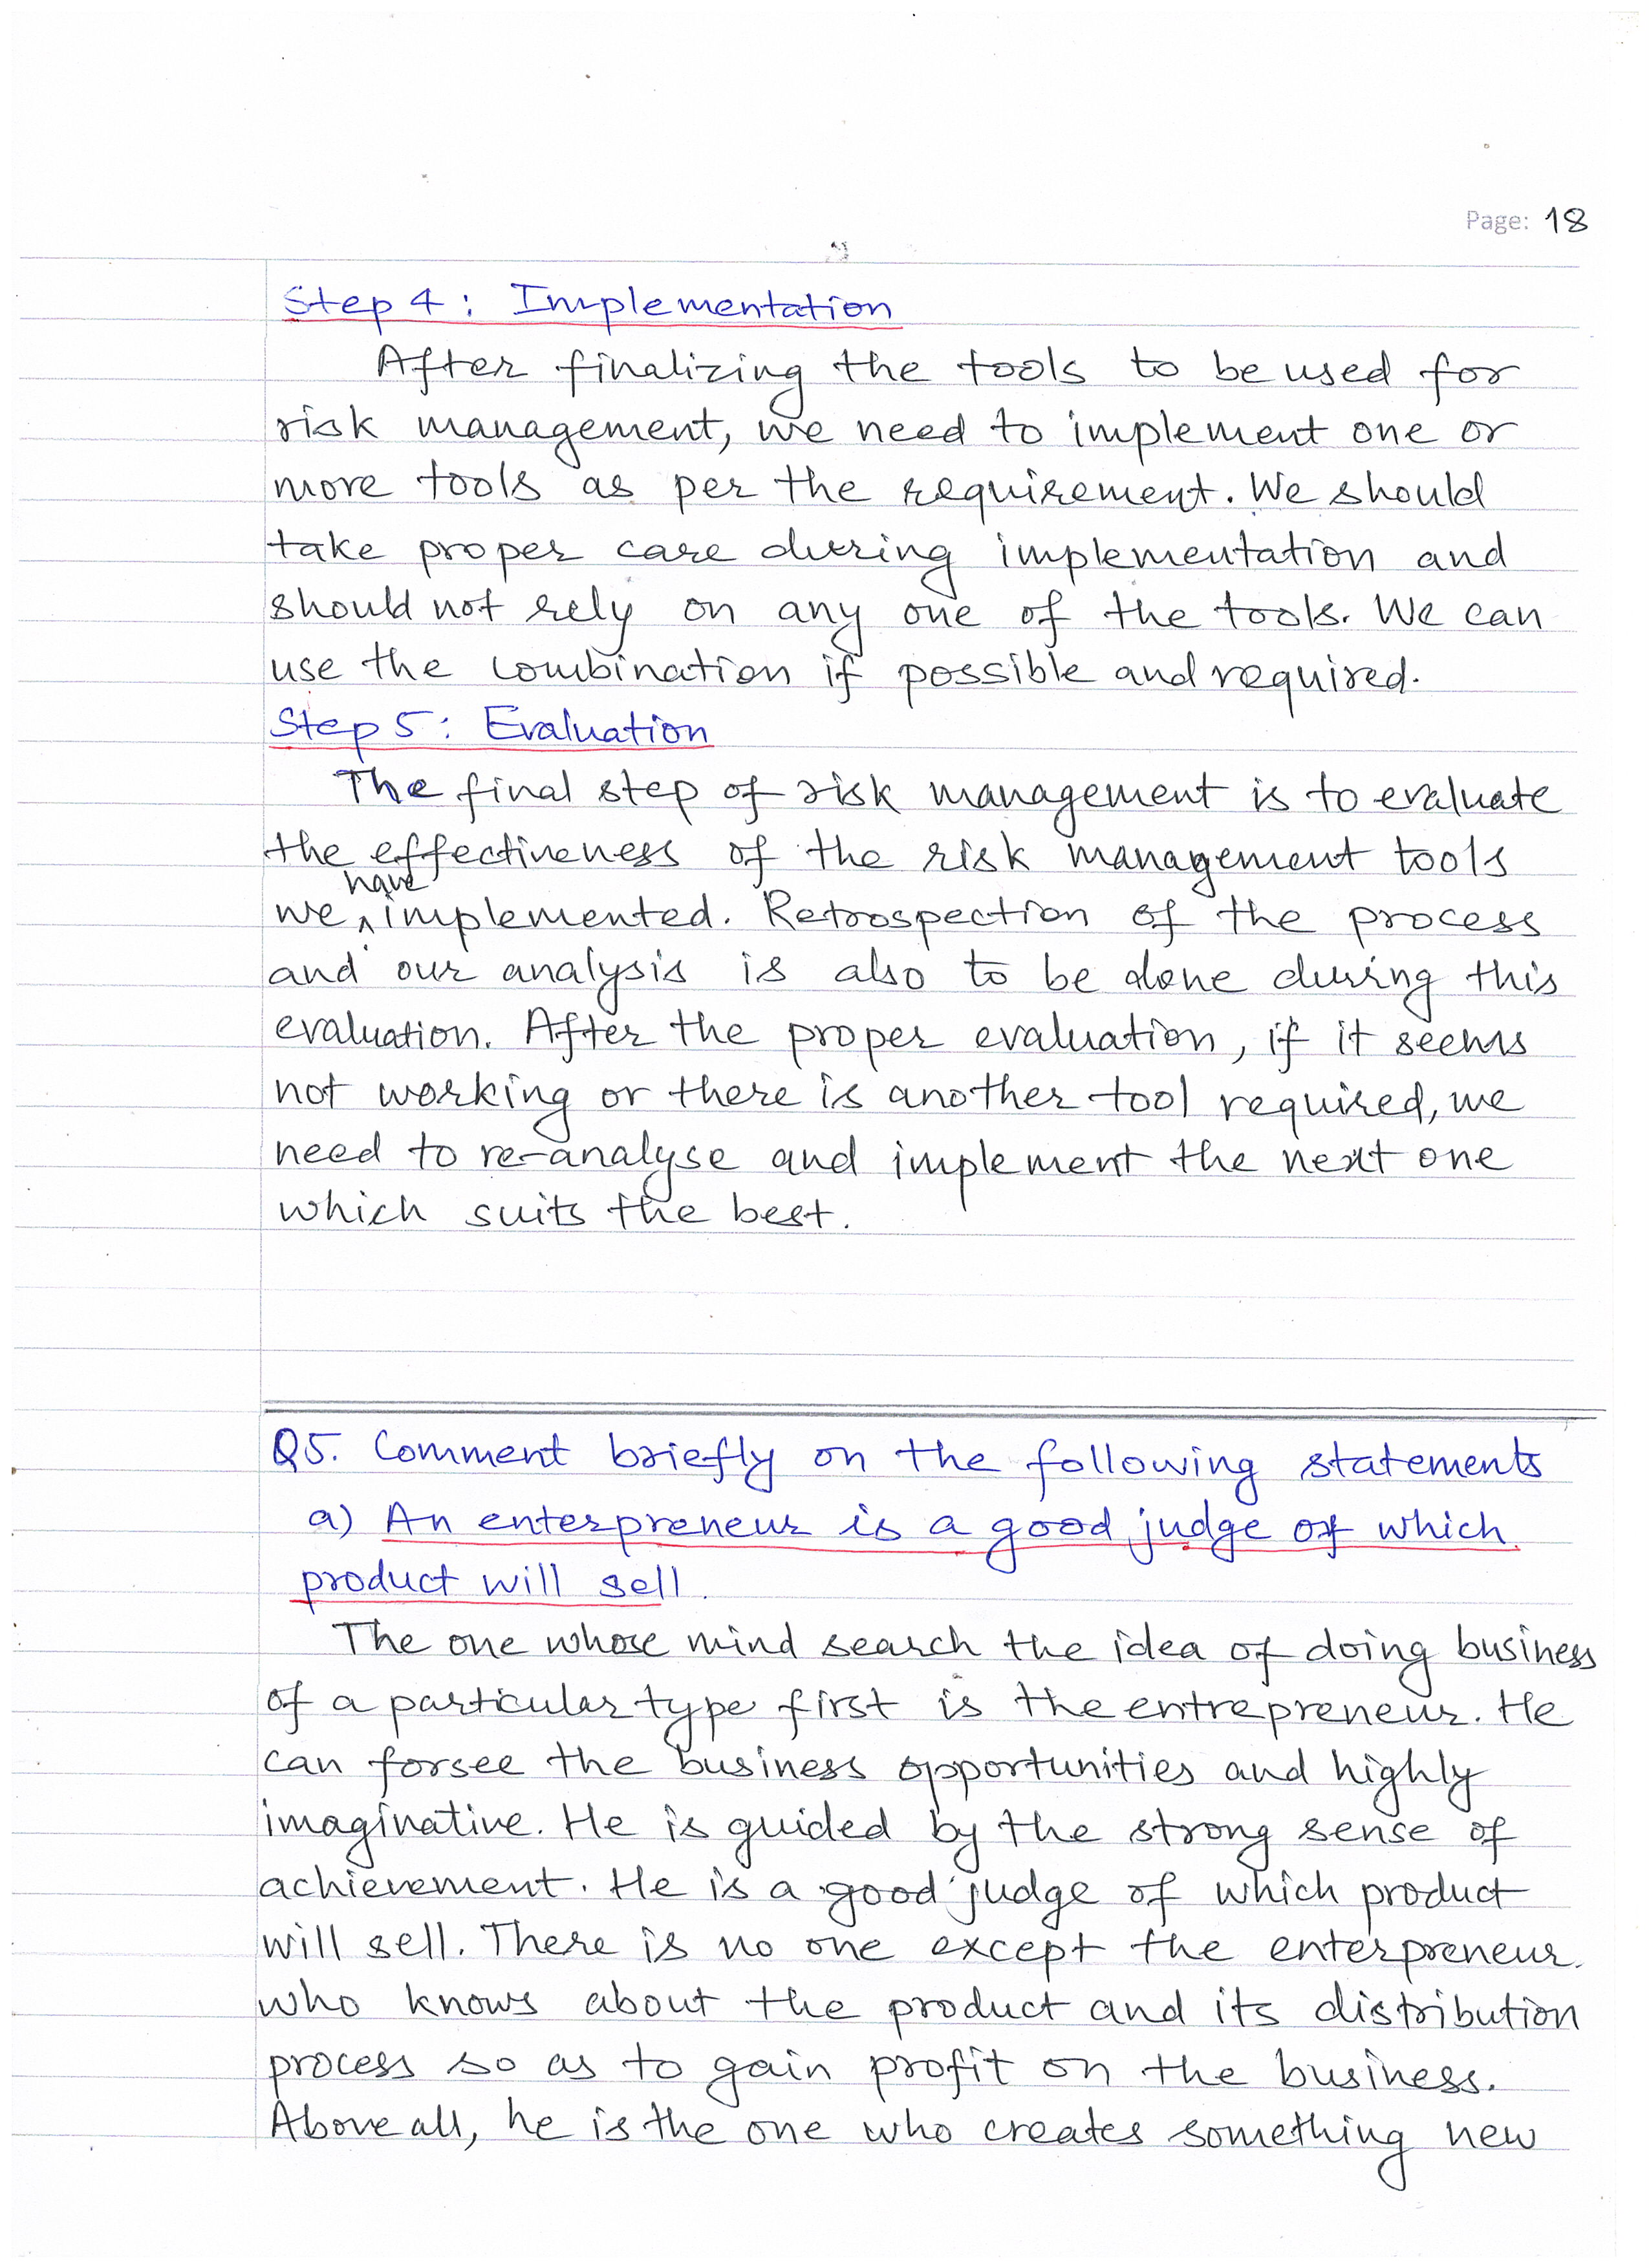 Page: 18
Step 4: Implementation
After finalizing the tools to be used for
risk management, we need to implement one or
more tools as per the requirement. We should
take proper care during implementation and
should not rely on any one of the tools. We can
use the combination if possible and required.
Step 5: Evaluation
The final step of risk management is to evaluate
the effectiveness of the risk management tools
we have implemented. Retrospection of the process
and our analysis is also to be done during this
evaluation. After the proper evaluation, if it seems
not working or there is another tool required, we
need to re-analyse and implement the next one
which suits the best.
Q5. Comment briefly on the following statements
a) An enterpreneur is a good judge of which
product will sell.
The one whose mind search the idea of doing business
of a particular type first is the entrepreneur. He
can forsee the business opportunities and highly
imaginative. He is guided by the strong sense of
achievement. He is a good judge of which product
will sell. There is no one except the enterpreneur
who knows about the product and its distribution
process so as to gain profit on the business.
Above all, he is the one who creates something new